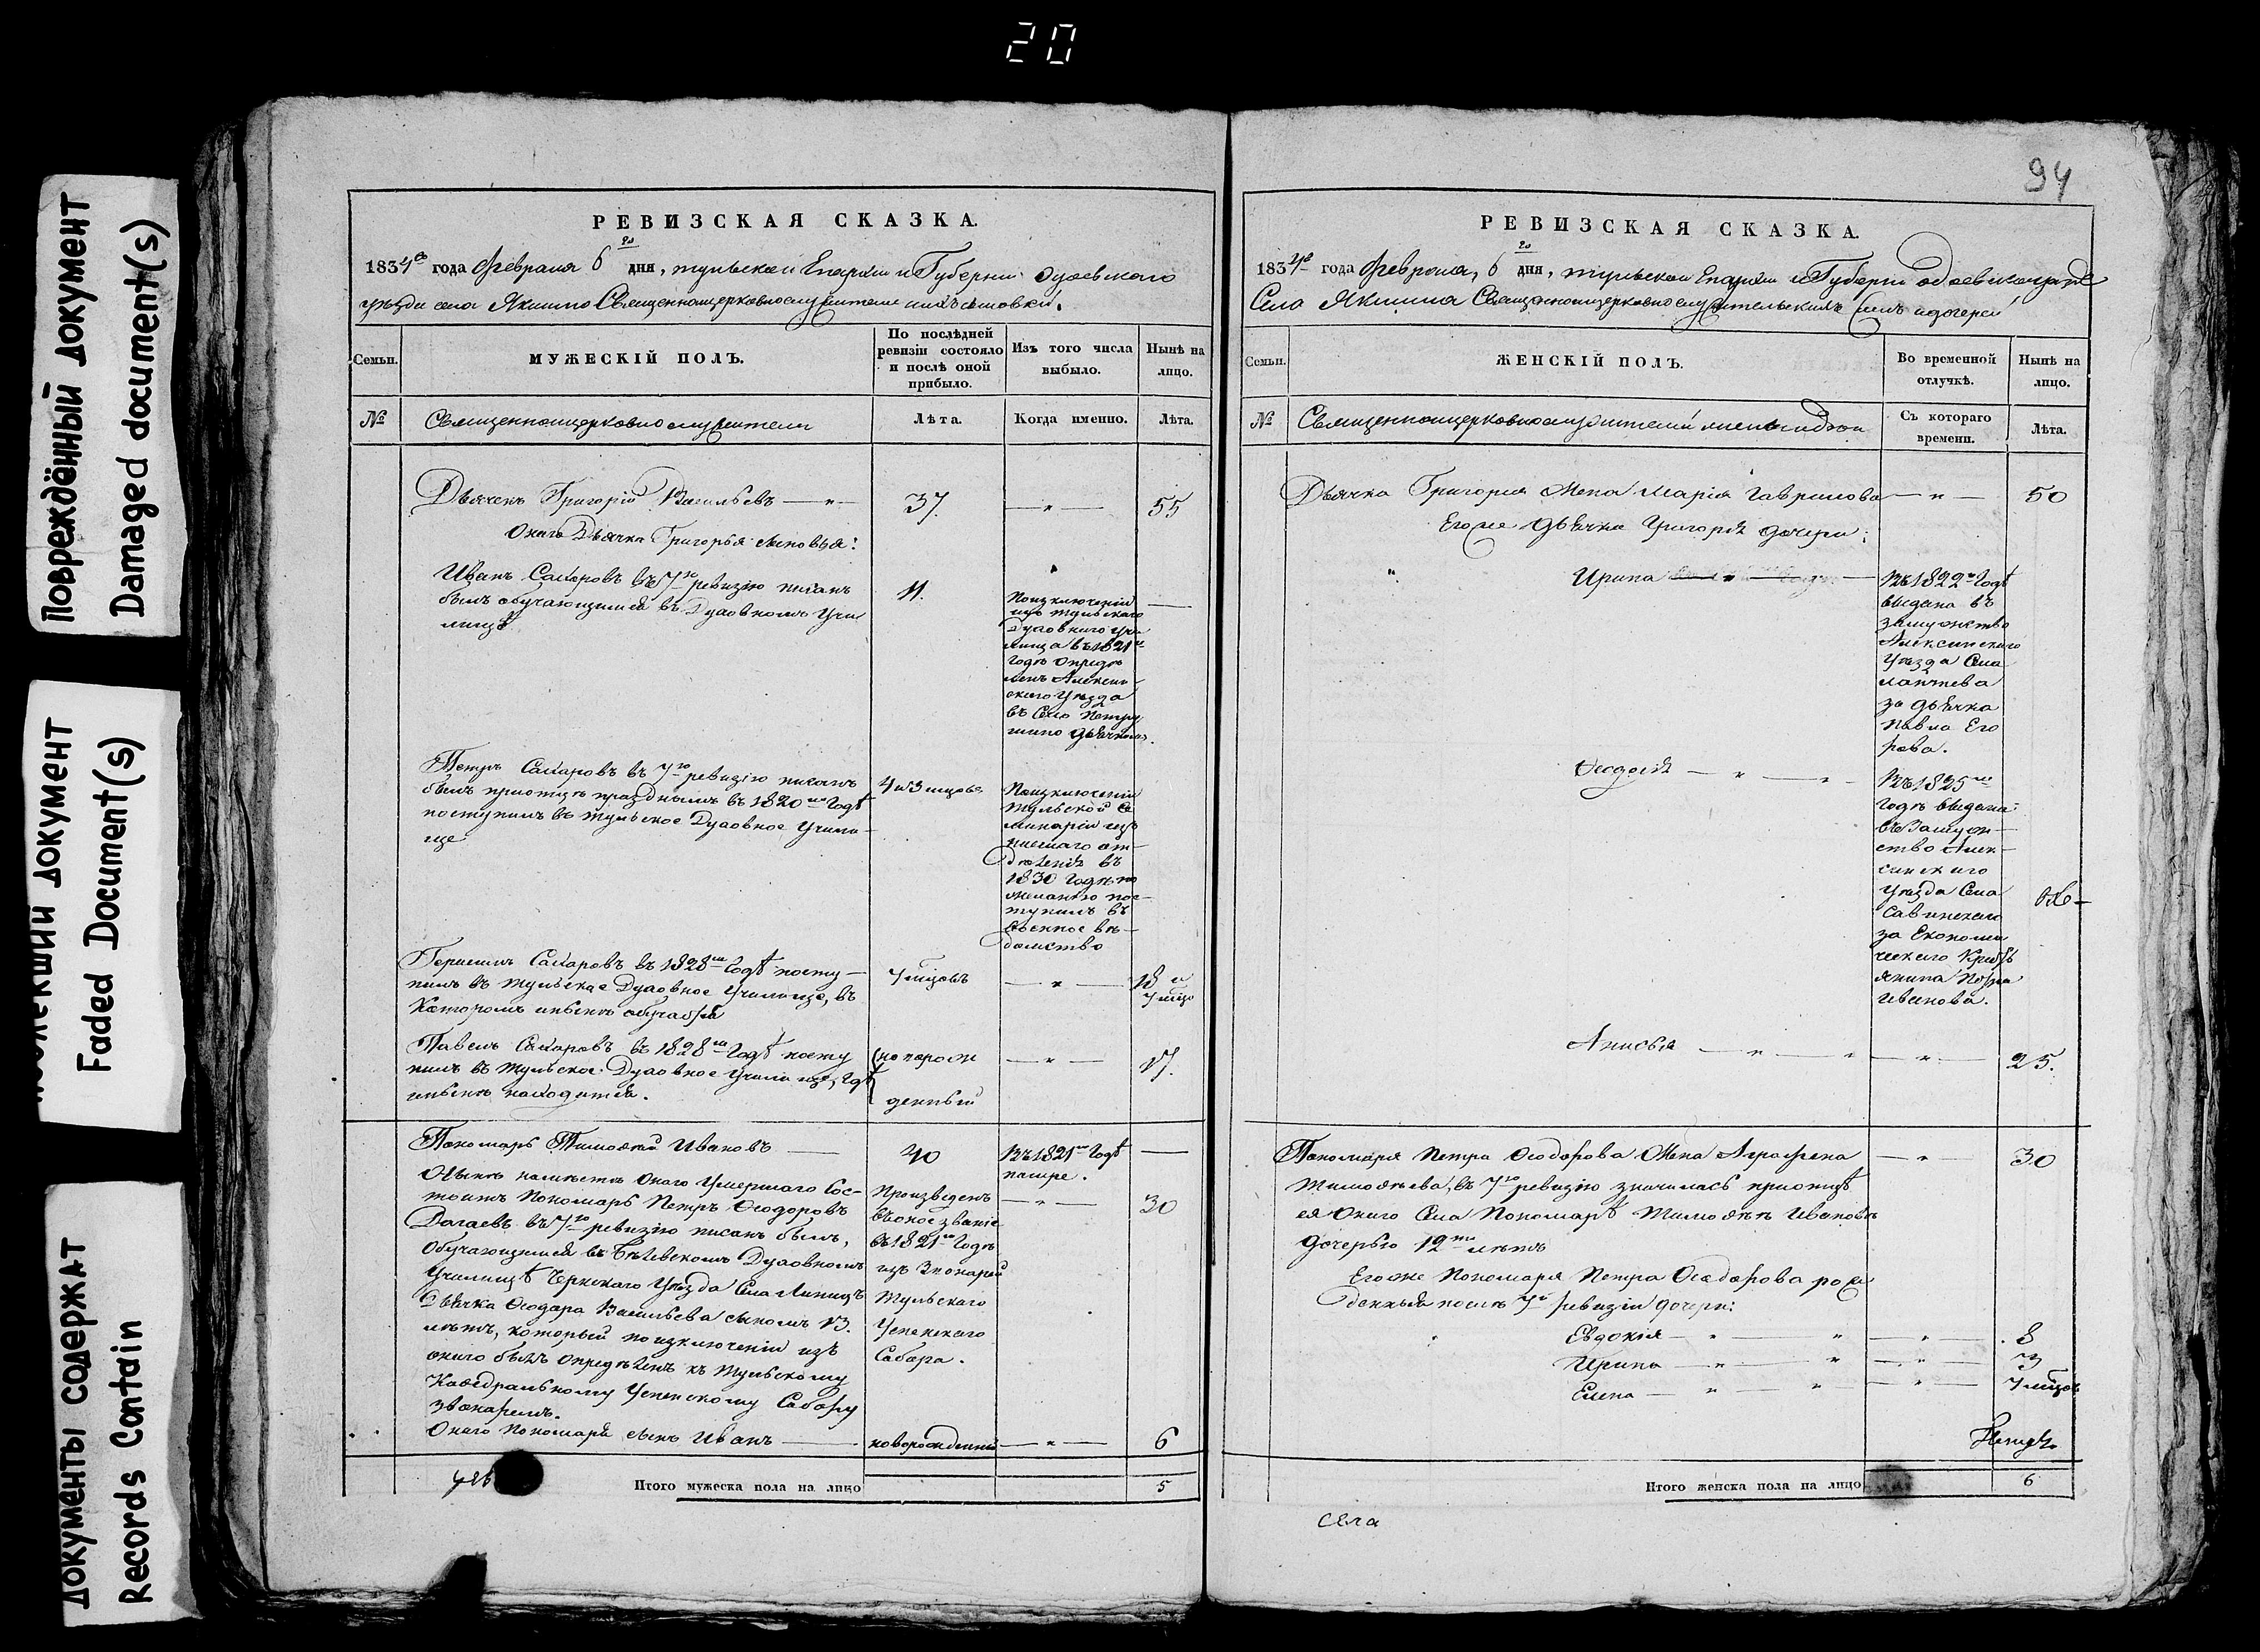 20
Повреждённый документ
Damaged document(s)
документ
Faded Document(s)
Документы содержат
Records Contain
РЕВИЗСКАЯ СКАЗКА.
1834го года Февраля 6го дня, Тульской Епархіи и Губерніи Одоевскаго
уѣзда села Якшино Священноцерковнослужители
Семьи.
МУЖЕСКІЙ ПОЛЪ.
По послѣдней
ревизіи состояло
и послѣ оной
прибыло.
Изъ того числа
выбыло.
Нынѣ на
лицо.
№
Священноцерковнослужители
Лѣта.
Когда именно.
Лѣта.
Дьячекъ Григорій Васильевъ
37.
55
Онаго Дьячка Григорья сыновья:
Иванъ Сахаровъ въ 7ю ревизію писанъ
былъ обучающимся въ Духовномъ Учи
лищѣ
11.
По изключеніи
изъ Тульскаго
Духовнаго Учи
лища въ 1821м
годѣ опредѣ
ленъ Алексин
скаго Уѣзда
въ Село Петру
шино дьячкомъ.
Петръ Сахаровъ въ 7ю ревизію писанъ
былъ при отцѣ празднымъ въ 1820м Годѣ
поступилъ въ Тульское Духовное Учили
ще
4 и 3 мцовъ
По изключеніи
Тульской Се
минаріи изъ
низшаго от
дѣленія въ
1830 Годѣ по
желанію пос
тупилъ въ
военное вѣ
домство
Сахаровъ въ 1828м Годѣ посту
пилъ въ Тульское Духовное Училище, въ
Которомъ нынѣ обучается
7 мцовъ
18 и
7 мцо
Павелъ Сахаровъ въ 1828м Годѣ посту
пилъ въ Тульское Духовное Училище, гдѣ
и нынѣ находится.
новорож
денный
17.
Пономарь Тимоѳей Ивановъ
40
Въ 1821м Годѣ
помре.
Нынѣ на мѣсто онаго Умершаго Сос
тоитъ Пономарь Петръ Ѳеодоровъ
Дагаевъ въ 7ю ревизію писанъ былъ,
Обучающимся въ Бѣлевскомъ Духовномъ
Училищѣ Чернскаго Уѣзда Села Липицъ
Дьячка Ѳеодора Васильева сыномъ 13.
лѣтъ, который по изключеніи изъ
онаго былъ опредѣленъ къ Тульскому
Каѳедральному Успенскому Собору
звонаремъ.
Произведенъ
въ оное званіе
въ 1821м Годѣ
изъ Звонарей
Тульскаго
Успенскаго
Собора.
30
Онаго Пономаря сынъ Иванъ
новорожденный
6
Итого мужеска пола на лицо
5
94
РЕВИЗСКАЯ СКАЗКА.
1834го года Февраля, 6го дня, Тульской Епархіи и Губерніи Одоевскаго
Села Якшина Священноцерковнослужительскихъ женъ и дочерей
Семьи.
ЖЕНСКІЙ ПОЛЪ.
Во временной
отлучкѣ.
Нынѣ на
лицо.
№
Священноцерковнослужителей
Съ котораго
времени.
Лѣта.
Дьячка Григорія Жена Марія Гаврилова
50
Его же дьячка Григорія дочери:
Ирина
Въ 1822м Годѣ
выдана въ
замужство
Алексинскаго
Уѣзда Села
за дьячка
Павла Его
рова.
Ѳеодосія
Въ 1825м
Годѣ выдана
въ Замуж
ство Алек
синскаго
Уѣзда Села
Савинскаго
за Економи
ческаго Кресть
янина Петра
Иванова.
Анисья
25.
Пономаря Петра Ѳеодорова Жена Аграфена
Тимоѳеева, въ 7ю ревизію значилась при отцѣ
ея онаго Села Пономарѣ Тимоѳеѣ Ивановѣ
Дочерью 12ти лѣтъ
30
Его же Пономаря Петра Ѳеодорова рож
денныя послѣ 7й ревизіи дочери:
Евдокія
8
Ирина
3
Елена
7 мцовъ
Итого женска пола на лицо
6
села